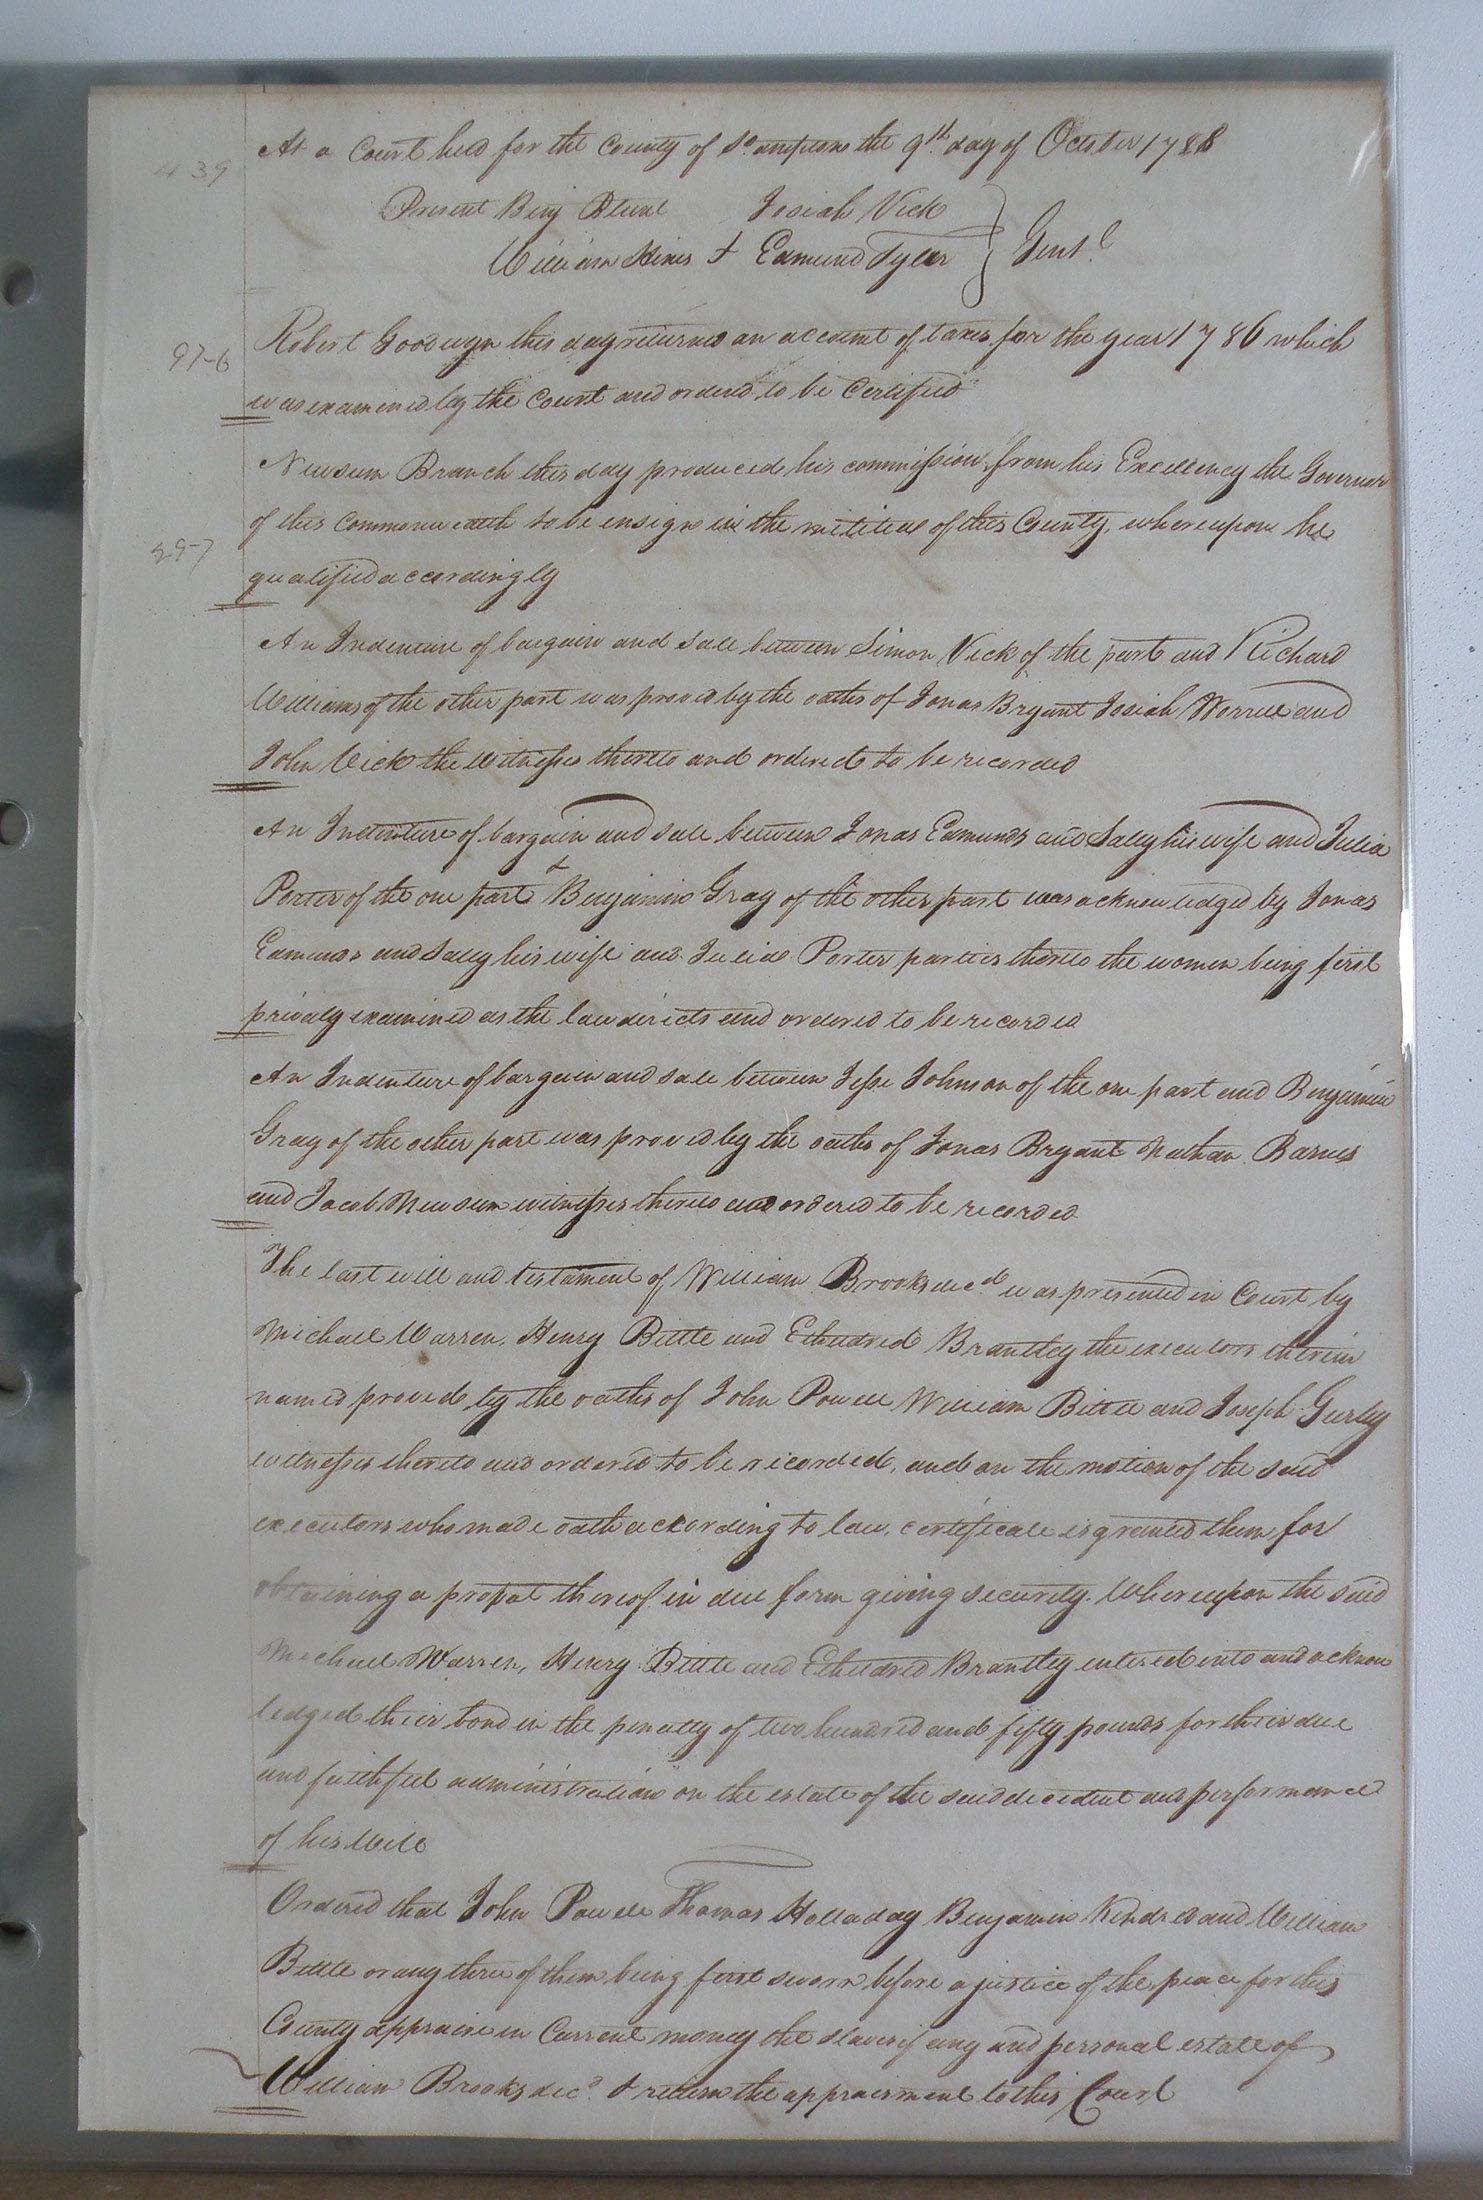 At a Court held for the County of So.ampton the 9th day of October 1788
439
Present Benj Blunt Josiah Vick
William Hines & Edmund Tyler } Gent.
Robert Goodwyn this day returned an account of taxes for the year 1786 which
97-6
was examined by the Court and orderd to be Certified
Newsum Branch this day produced his commission from his Excellency the Governor
of this Commonwealth to be ensign in the militia of this County, whereupon he
qualified accordingly
An Indenture of bargain and Sale between Simon Vick of the part and Richard
Williams of the other part was proved by the oaths of Jonas Bryant Josiah Worrell and
John Vick the witnesses thereto and ordered to be recorded
An Indenture of bargain and sale between Jonas Edmunds and Sally his wife and Julia
Porter of the one part & Benjamin Gray of the other part was acknowledged by Jonas
Edmunds and Sally his wife and Julia Porter parties thereto the women being first
privaly examined as the law directs and ordered to be recorded
An Indenture of bargain and sale between Jesse Johnson of the one part and Benjamin
Gray of the other part was proved by the oaths of Jonas Bryant Nathan Barnes
and Jacob Newsum witnesses thereto and ordered to be recorded
The last will and testament of William Brooks decd was presented in Court by
Michael Warren, Henry Bittle and Etheldred Brantley the executors therein
named proved by the oaths of John Powell William Bittle and Joseph Gurley
witnesses thereto and ordered to be recorded, and on the motion of the said
executors who made oath according to law, certificate is granted them for
obtaining a probat thereof in due form giving security. Whereupon the said
Michael Warren, Henry Bittle and Etheldred Brantley entered into and acknow
ledged their bond in the penalty of two hundred and fifty pounds for their due
and faithful administration on the estate of the said decedent and performance
of his Will
Ordered that John Powell Thomas Holladay Benjamin Kindred and William
Bittle or any three of them being first sworn before a justice of the peace for this
County appraise in Current money the slaves if any and personal estate of
William Brooks decd. & return the appraisment to this Court